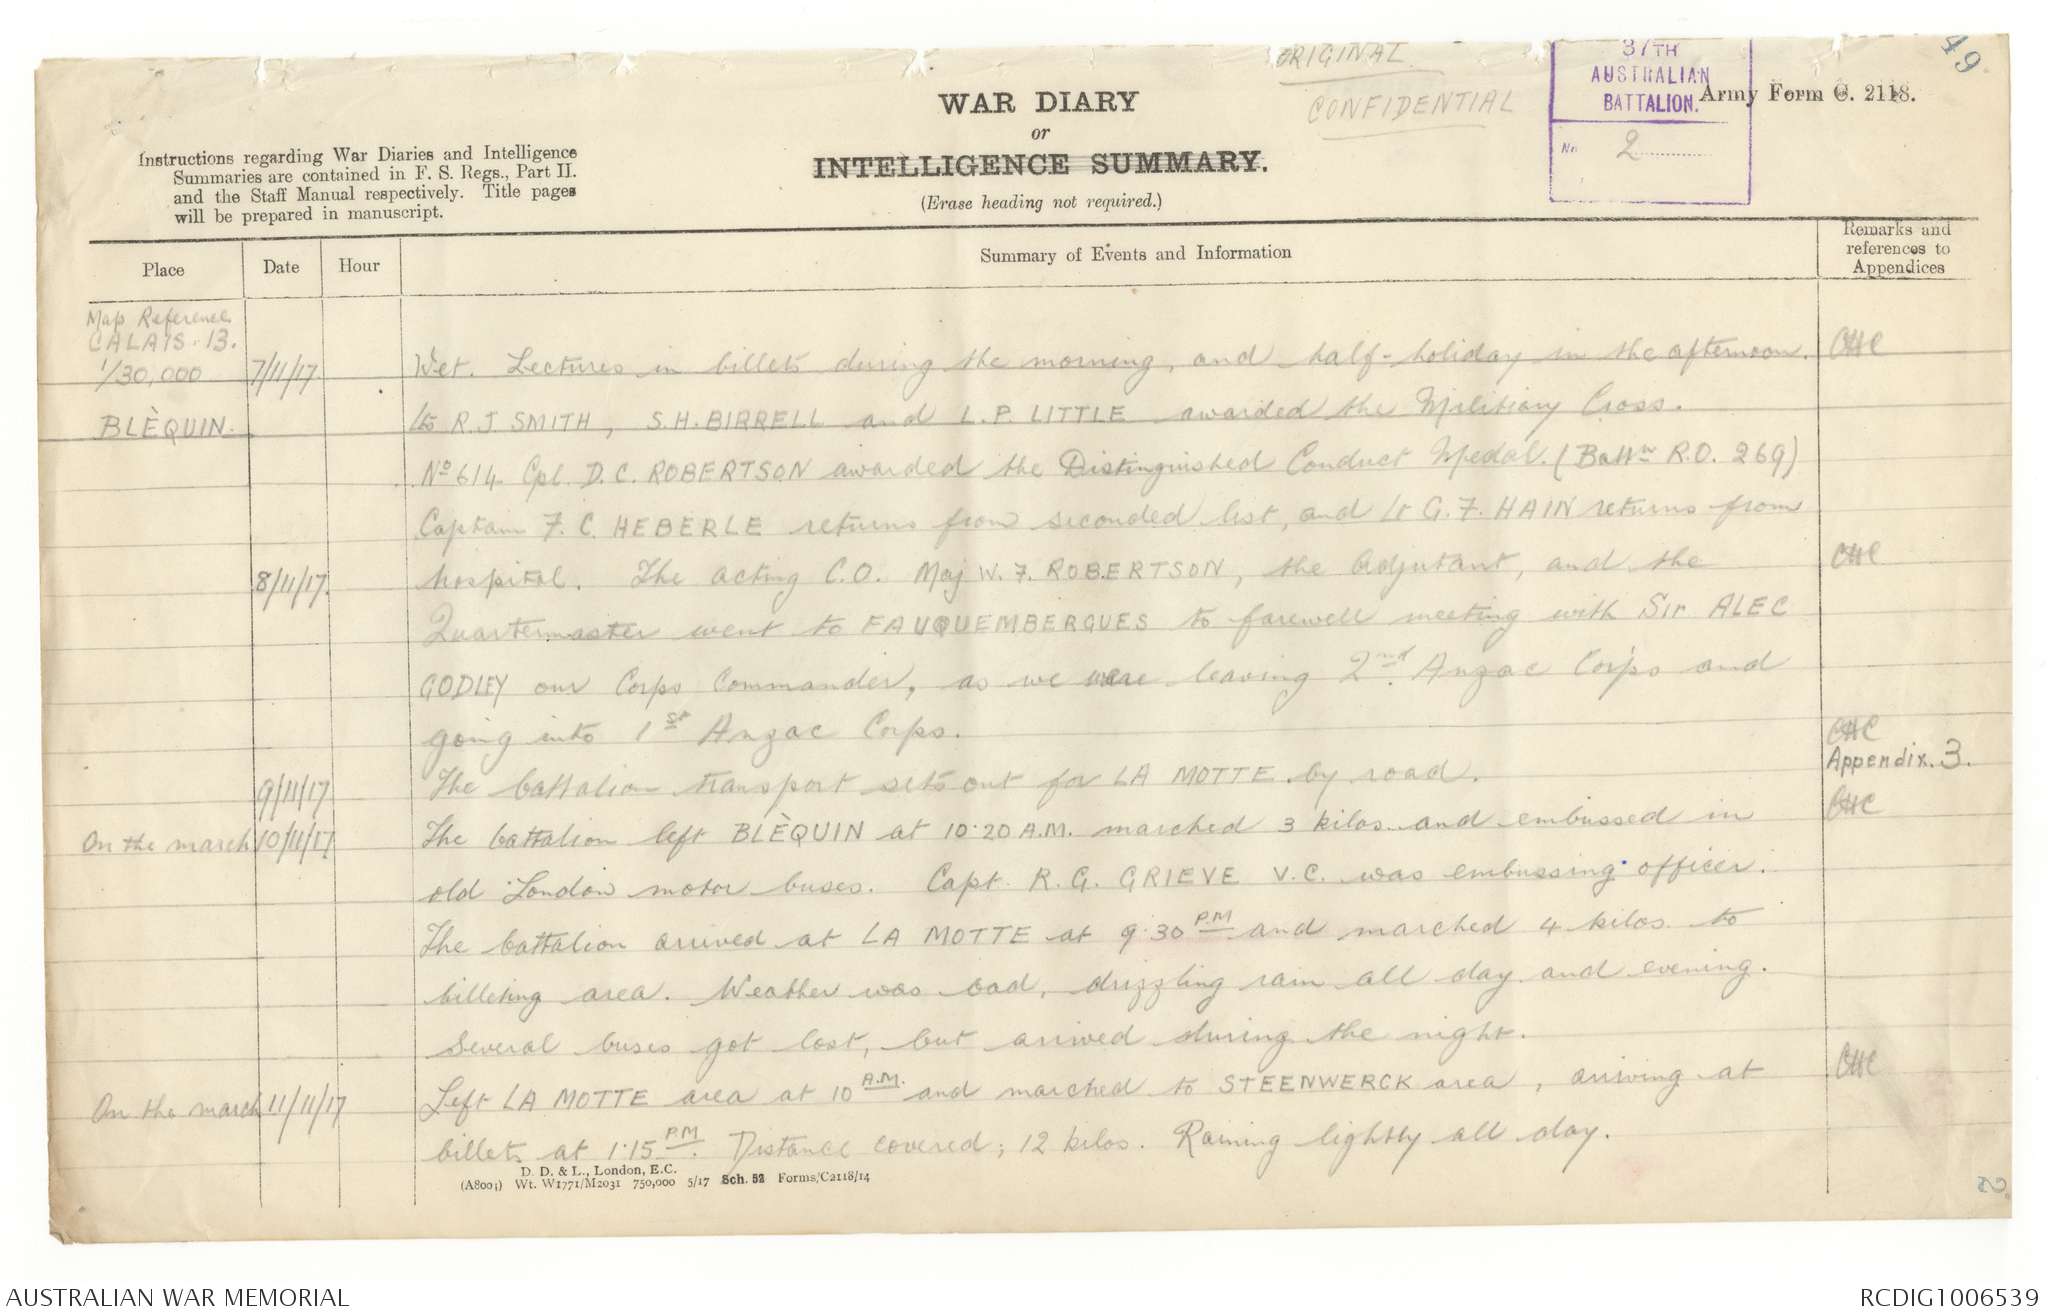 ORIGINAL.
CONFIDENTIAL
37TH
AUSTRALIAN
BATTALION.
No. 2
49
Army Form C. 2118.
WAR DIARY
or
INTELLIGENCE SUMMARY.
(Erase heading not required.)
Instructions regarding War Diaries and Intelligence
Summaries are contained in F. S. Regs., Part II.
and the Staff Manual respectively. Title pages
will be prepared in manuscript.
Place
Date
Hour
Summary of Events and Information
Remarks and
references to
Appendices
Map Reference
CALAIS. 13.
1/30,000
BLÈQUIN.
7/11/17. Wet. Lectures in billets during the morning, and half-holiday in the afternoon. CHC
Lts R.J SMITH, S.H. BIRRELL and L.P. LITTLE awarded the Military Cross.
No 614 Cpl. D.C. ROBERTSON awarded the Distinguished Conduct Medal. (Battn R.O. 269)
Captain F.C. HEBERLE returns from seconded list, and Lt G.F. HAIN returns from
8/11/17. hospital. The acting C.O. Maj W.F. ROBERTSON, the Adjutant, and the CHC
Quartermaster went to FAUQUEMBERGUES to farewell meeting with Sir ALEC
GODLEY our Corps Commander, as we were leaving 2nd Anzac Corps and
going into 1st Anzac Corps.
CHC
9/11/17 The battalion transport sets out for LA MOTTE by road. Appendix. 3.
On the march 10/11/17 The battalion left BLÈQUIN at 10:20 A.M. marched 3 kilos and embussed in CHC
old London motor buses. Capt. R.G. GRIEVE V.C. was embussing officer.
The battalion arrived at LA MOTTE at 9:30 P.M and marched 4 kilos to
billeting area. Weather was bad, drizzling rain all day and evening.
Several buses got lost, but arrived during the night.
On the march 11/11/17 Left LA MOTTE area at 10 A.M. and marched to STEENWERCK area, arriving at CHC
billets at 1:15 P.M. Distance covered; 12 kilos. Raining lightly all day.
D. D. & L., London, E.C.
(A8001) Wt. W1771/M2031 750,000 5/17 Sch. 52 Forms/C2118/14
AUSTRALIAN WAR MEMORIAL
RCDIG1006539